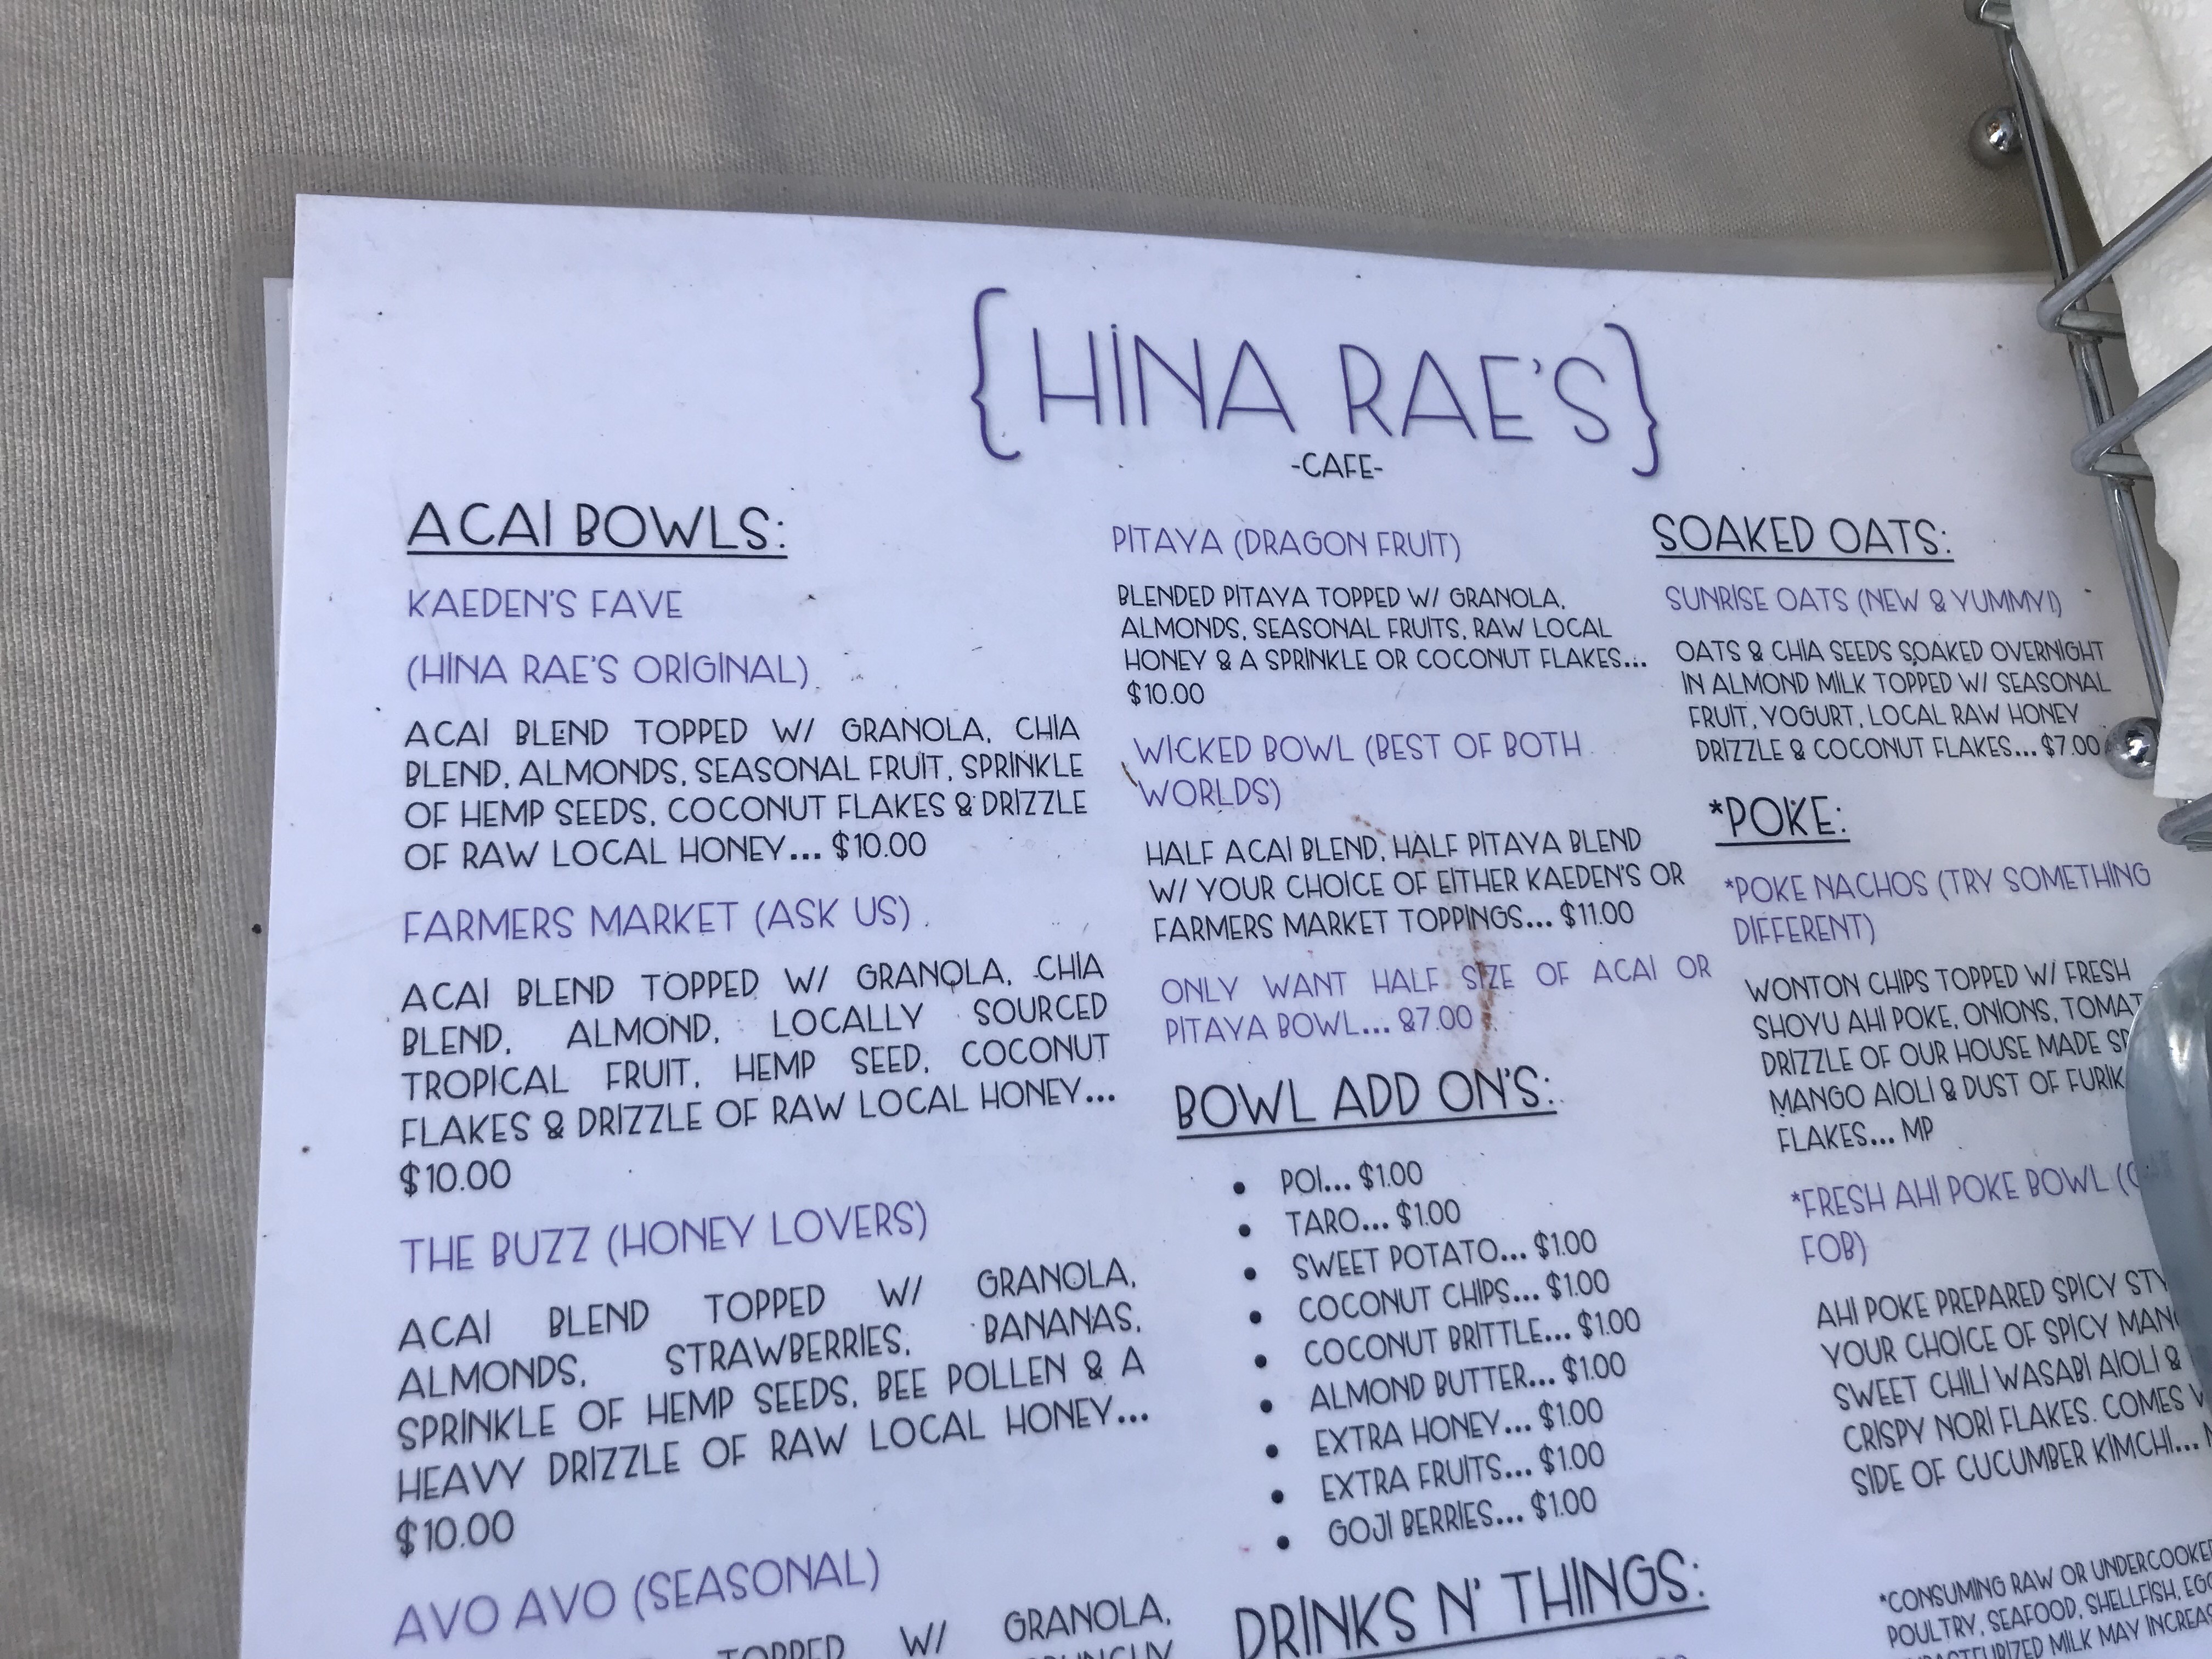 {HINA RAE'S}
-CAFE-
ACAI BOWLS:
KAEDEN'S FAVE
(HINA RAE'S ORIGINAL)
ACAI BLEND TOPPED W/ GRANOLA, CHIA
BLEND, ALMONDS, SEASONAL FRUIT, SPRINKLE
OF HEMP SEEDS, COCONUT FLAKES & DRIZZLE
OF RAW LOCAL HONEY... $10.00
FARMERS MARKET (ASK US)
ACAI BLEND TOPPED W/ GRANOLA, CHIA
BLEND, ALMOND, LOCALLY SOURCED
TROPICAL FRUIT, HEMP SEED, COCONUT
FLAKES & DRIZZLE OF RAW LOCAL HONEY...
$10.00
THE BUZZ (HONEY LOVERS)
ACAI BLEND TOPPED W/ GRANOLA,
ALMONDS, STRAWBERRIES, BANANAS,
SPRINKLE OF HEMP SEEDS, BEE POLLEN & A
HEAVY DRIZZLE OF RAW LOCAL HONEY...
$10.00
AVO AVO (SEASONAL)
TOPPED W/ GRANOLA,
PITAYA (DRAGON FRUIT)
BLENDED PITAYA TOPPED W/ GRANOLA,
ALMONDS, SEASONAL FRUITS, RAW LOCAL
HONEY & A SPRINKLE OR COCONUT FLAKES...
$10.00
WICKED BOWL (BEST OF BOTH
WORLDS)
HALF ACAI BLEND, HALF PITAYA BLEND
W/ YOUR CHOICE OF EITHER KAEDEN'S OR
FARMERS MARKET TOPPINGS... $11.00
ONLY WANT HALF SIZE OF ACAI OR
PITAYA BOWL... &7.00
BOWL ADD ON'S:
• POI... $1.00
• TARO... $1.00
• SWEET POTATO... $1.00
• COCONUT CHIPS... $1.00
• COCONUT BRITTLE... $1.00
• ALMOND BUTTER... $1.00
• EXTRA HONEY... $1.00
• EXTRA FRUITS... $1.00
• GOJI BERRIES... $1.00
DRINKS N' THINGS:
SOAKED OATS:
SUNRISE OATS (NEW & YUMMY!)
OATS & CHIA SEEDS SOAKED OVERNIGHT
IN ALMOND MILK TOPPED W/ SEASONAL
FRUIT, YOGURT, LOCAL RAW HONEY
DRIZZLE & COCONUT FLAKES... $7.00
*POKE:
*POKE NACHOS (TRY SOMETHING
DIFFERENT)
WONTON CHIPS TOPPED W/ FRESH
SHOYU AHI POKE, ONIONS, TOMAT
DRIZZLE OF OUR HOUSE MADE
MANGO AIOLI & DUST OF FURIK
FLAKES... MP
*FRESH AHI POKE BOWL
FOB)
AHI POKE PREPARED SPICY STY
YOUR CHOICE OF SPICY MAN
SWEET CHILI WASABI AIOLI &
CRISPY NORI FLAKES. COMES
SIDE OF CUCUMBER KIMCHI...
*CONSUMING RAW OR UNDERCOOKE
POULTRY, SEAFOOD, SHELLFISH, EG
MILK MAY INCREAS